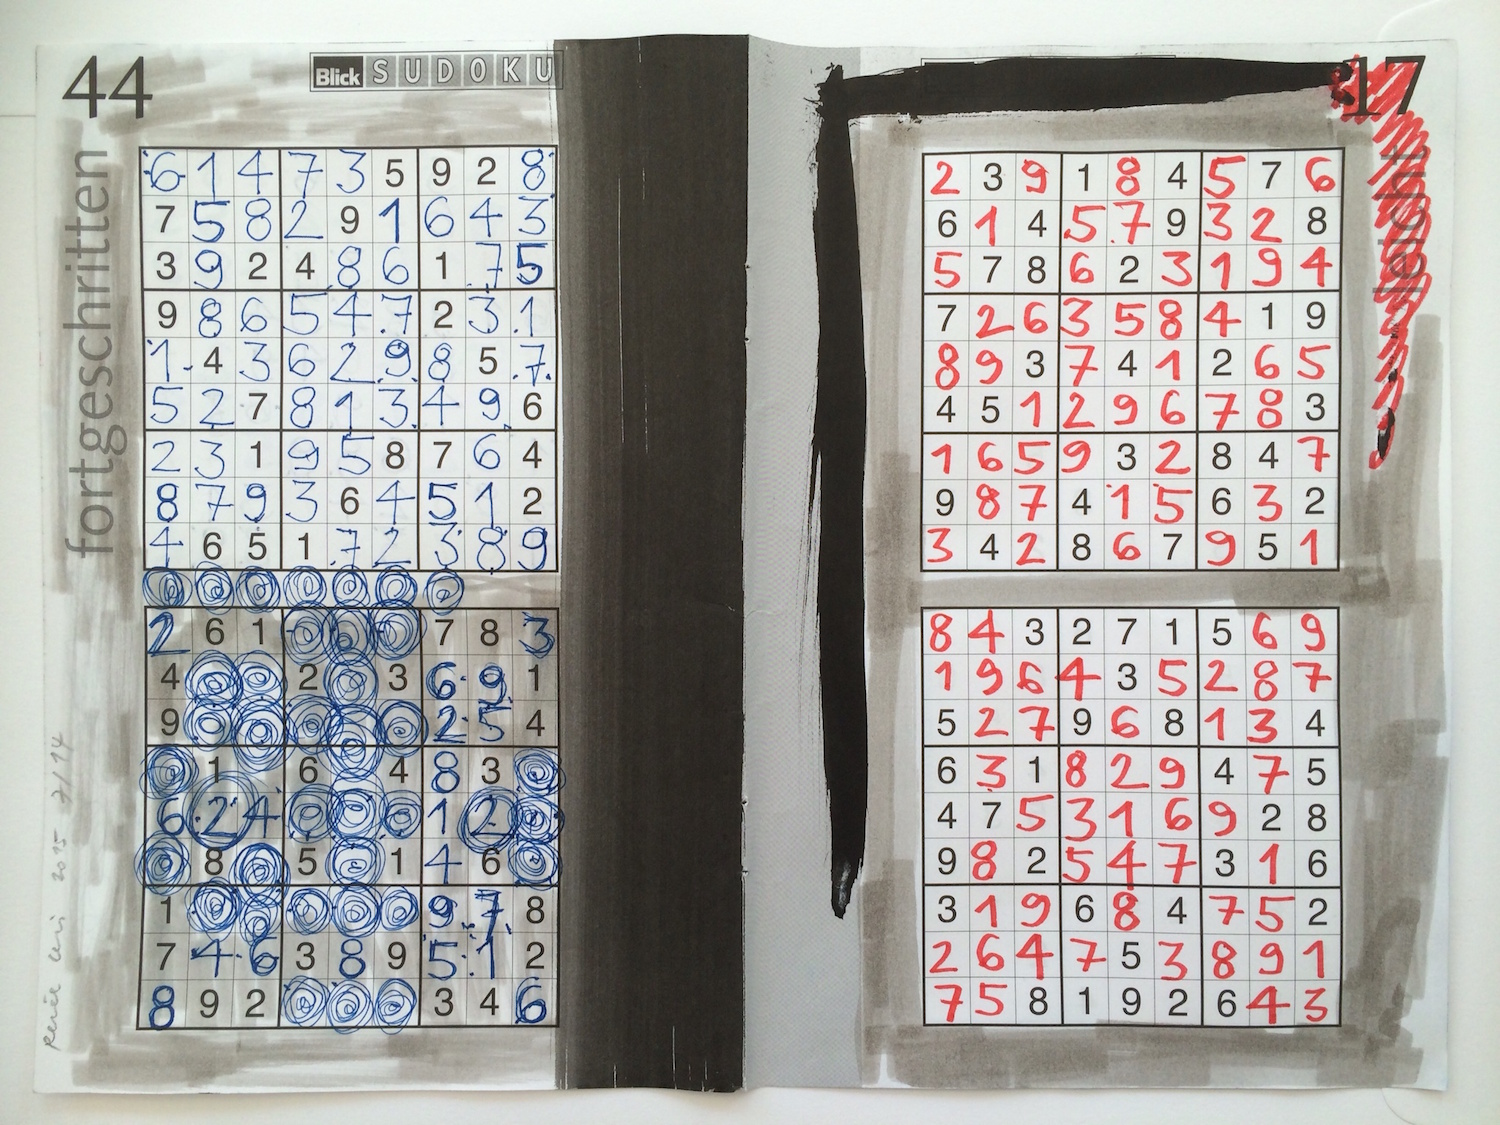 44
Blick SUDOKU
fortgeschritten
6 1 4 7 3 5 9 2 8
7 5 8 2 9 1 6 4 3
3 9 2 4 8 6 1 7 5
9 8 6 5 4 7 2 3 1
1 4 3 6 2 9 8 5 7
5 2 7 8 1 3 4 9 6
2 3 1 9 5 8 7 6 4
8 7 9 3 6 4 5 1 2
4 6 5 1 7 2 3 8 9
2 6 1 7 8 3
4 2 3 6 9 1
9 2 5 4
1 6 4 8 3
6 2 4 1 2
8 5 1 4 6
1 9 7 8
7 4 6 3 8 9 5 1 2
8 9 2 3 4 6
2015 7/14
17
leicht
2 3 9 1 8 4 5 7 6
6 1 4 5 7 9 3 2 8
5 7 8 6 2 3 1 9 4
7 2 6 3 5 8 4 1 9
8 9 3 7 4 1 2 6 5
4 5 1 2 9 6 7 8 3
1 6 5 9 3 2 8 4 7
9 8 7 4 1 5 6 3 2
3 4 2 8 6 7 9 5 1
8 4 3 2 7 1 5 6 9
1 9 6 4 3 5 2 8 7
5 2 7 9 6 8 1 3 4
6 3 1 8 2 9 4 7 5
4 7 5 3 1 6 9 2 8
9 8 2 5 4 7 3 1 6
3 1 9 6 8 4 7 5 2
2 6 4 7 5 3 8 9 1
7 5 8 1 9 2 6 4 3